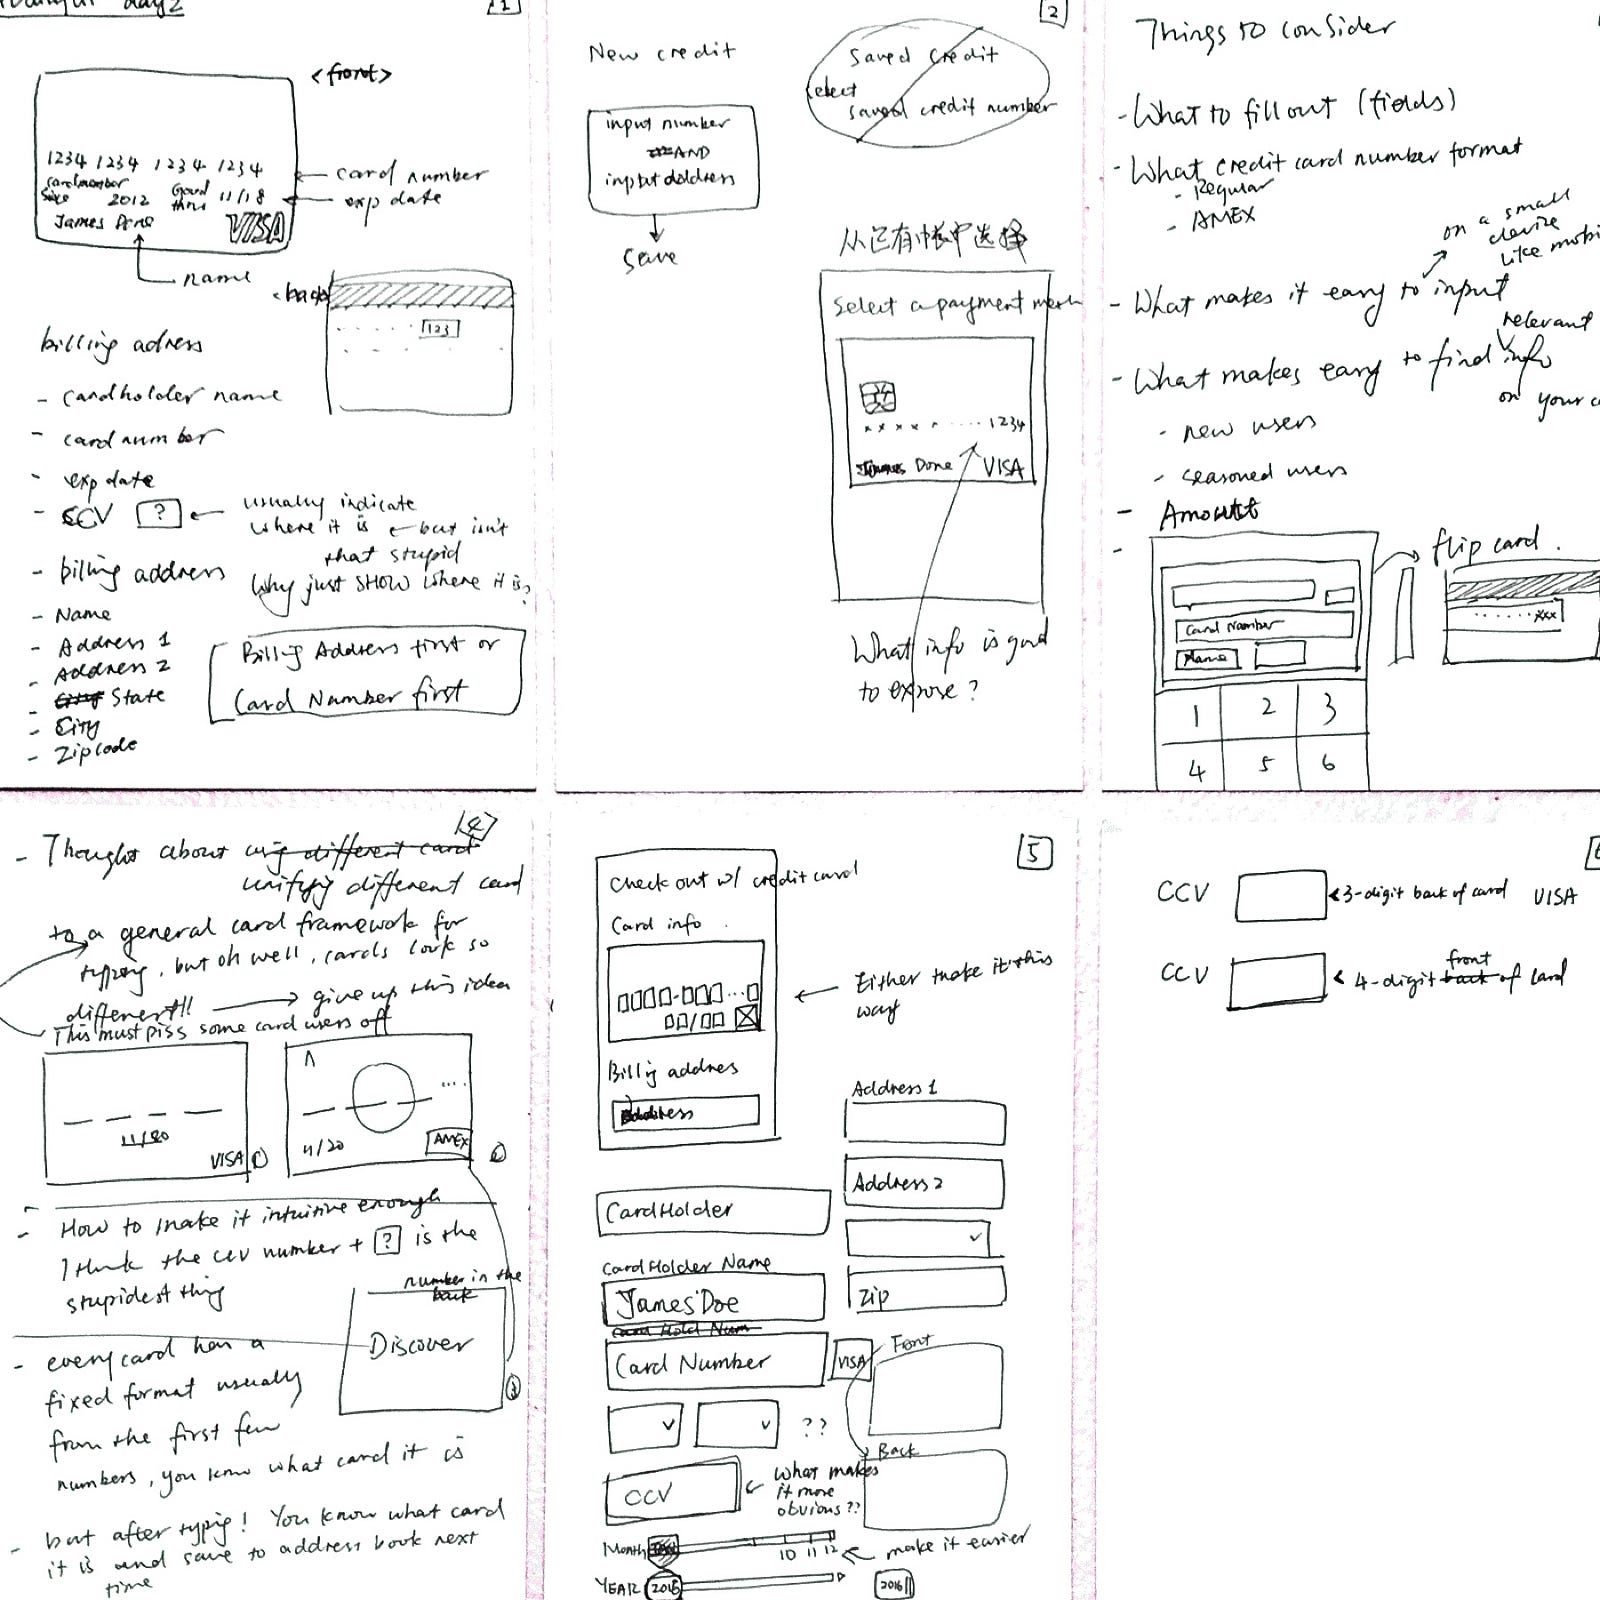 day2
1
<front>
1234 1234 1234 1234
card member
Since 2012 Good thru 11/18
James Done VISA
card number
exp date
name
<back>
123
billing adress
- Cardholder name
- card number
- exp date
- CCV ?
usually indicate
where it is ← but isn't
that stupid
Why just SHOW where it is?
- billing address
- Name
- Address 1
- Address 2
- State
- City
- Zipcode
Billing Address first or
Card Number first
2
New credit
input number
AND
input address
save
Saved credit
select
saved credit number
从已有帐中选择
Select a payment meth
x x x x x ..... 1234
James Done VISA
What info is good
to expose?
Things to consider
- What to fill out (fields)
- What credit card number format
- Regular
- AMEX
- What makes it easy to input
on a small
device
like mobi
- What makes easy to find info
relevant
on your c
- new users
- seasoned users
- Amount
-
flip card.
xxx
Card Number
Name
1 2 3
4 5 6
4
- Thought about using different card
unifying different card
to a general card framework for
typing, but oh well, cards look so
different!! → give up this idea
This must piss some card users off
11/20
VISA 1
11/20
AMEX
2
- How to make it intuitive enough
I think the ccv number + ? is the
stupidest thing
number in the
back
Discover
3
- every card has a
fixed format usually
from the first few
numbers, you know what card it is
- but after typig! You know what card
it is and save to address book next
time
5
Check out w/ credit card
Card info
Billig address
Address
Either make it this
way
Address 1
Address 2
Zip
CardHolder
CardHolder Name
James Doe
Card Hold Num
Card Number
VISA
Font
Back
??
CCV
What makes
it more
obvious??
Month
10 11 12
make it easier
YEAR 2016
2016
6
CCV
3-digit back of card VISA
CCV
front
4-digit back of card